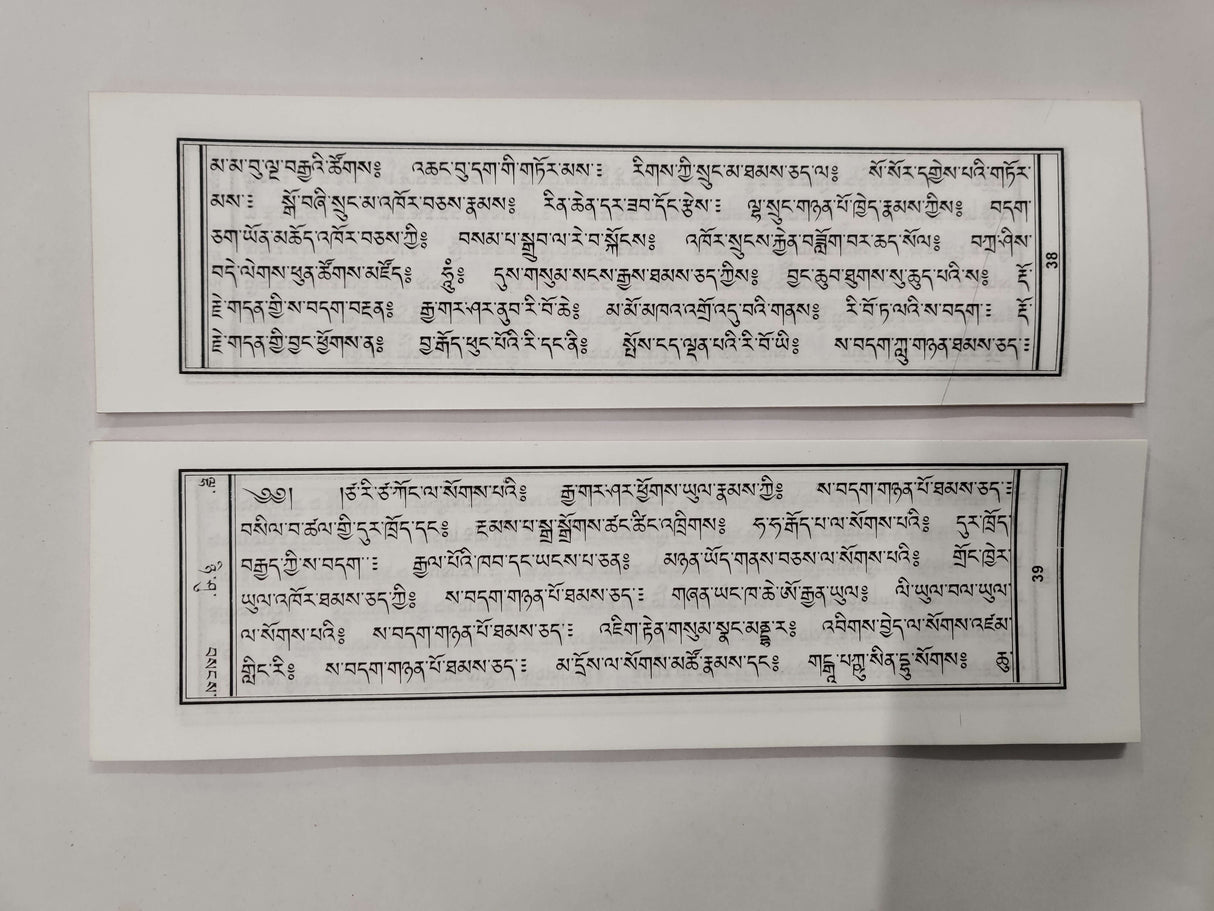 མ་མ་བུ་ལྔ་བརྒྱའི་ཚོགས༔ འཆང་བུ་དག་གི་གཏོར་མས་༔ རིགས་ཀྱི་སྲུང་མ་ཐམས་ཅད་ལ༔ སོ་སོར་དགྱེས་པའི་གཏོར་
མས་༔ སྒོ་བཞི་སྲུང་མ་འཁོར་བཅས་རྣམས༔ རིན་ཆེན་དར་ཟབ་དོང་རྩེས་༔ ལྷ་སྲུང་གཉན་པོ་ཁྱེད་རྣམས་ཀྱིས༔ བདག་
ཅག་ཡོན་མཆོད་འཁོར་བཅས་ཀྱི༔ བསམ་པ་སྒྲུབ་ལ་རེ་བ་སྐོངས༔ འཁོར་སྲུངས་རྐྱེན་བཟློག་བར་ཆད་སོལ༔ བཀྲ་ཤིས་
བདེ་ལེགས་ཕུན་ཚོགས་མཛོད༔ ཧཱུྃ༔ དུས་གསུམ་སངས་རྒྱས་ཐམས་ཅད་ཀྱིས༔ བྱང་ཆུབ་ཐུགས་སུ་ཆུད་པའི་ས༔ རྡོ་
རྗེ་གདན་གྱི་ས་བདག་བརྟན༔ རྒྱ་གར་ཤར་ནུབ་རི་བོ་ཆེ༔ མ་མོ་མཁའ་འགྲོ་འདུ་བའི་གནས༔ རི་བོ་ཏ་ལའི་ས་བདག་༔ རྡོ་
རྗེ་གདན་གྱི་བྱང་ཕྱོགས་ན༔ བྱ་རྒོད་ཕུང་པོའི་རི་དང་ནི༔ སྤོས་ངད་ལྡན་པའི་རི་བོ་ཡི༔ ས་བདག་ཀླུ་གཉན་ཐམས་ཅད་༔
38
༄༅། །ཙ་རི་ཙ་ཀོང་ལ་སོགས་པའི༔ རྒྱ་གར་ཤར་ཕྱོགས་ཡུལ་རྣམས་ཀྱི༔ ས་བདག་གཉན་པོ་ཐམས་ཅད་༔
བསིལ་བ་ཚལ་གྱི་དུར་ཁྲོད་དང༔ རྔམས་པ་སྒྲ་སྒྲོགས་ཚང་ཚིང་འཁྲིགས༔ ཧ་ཧ་རྒོད་པ་ལ་སོགས་པའི༔ དུར་ཁྲོད་
བརྒྱད་ཀྱི་ས་བདག་༔ རྒྱལ་པོའི་ཁབ་དང་ཡངས་པ་ཅན༔ མཉན་ཡོད་གནས་བཅས་ལ་སོགས་པའི༔ གྲོང་ཁྱེར་
ཡུལ་འཁོར་ཐམས་ཅད་ཀྱི༔ ས་བདག་གཉན་པོ་ཐམས་ཅད་༔ གཞན་ཡང་ཁ་ཆེ་ཨོ་རྒྱན་ཡུལ༔ ལི་ཡུལ་བལ་ཡུལ་
ལ་སོགས་པའི༔ ས་བདག་གཉན་པོ་ཐམས་ཅད་༔ འཇིག་རྟེན་གསུམ་སྣང་མནྡྷ་ར༔ འབིགས་བྱེད་ལ་སོགས་འཛམ་
གླིང་རི༔ ས་བདག་གཉན་པོ་ཐམས་ཅད་༔ མ་དྲོས་ལ་སོགས་མཚོ་རྣམས་དང༔ གངྒཱ་པཀྵུ་སིན་དྷུ་སོགས༔ ཆུ་
39
བསངས་